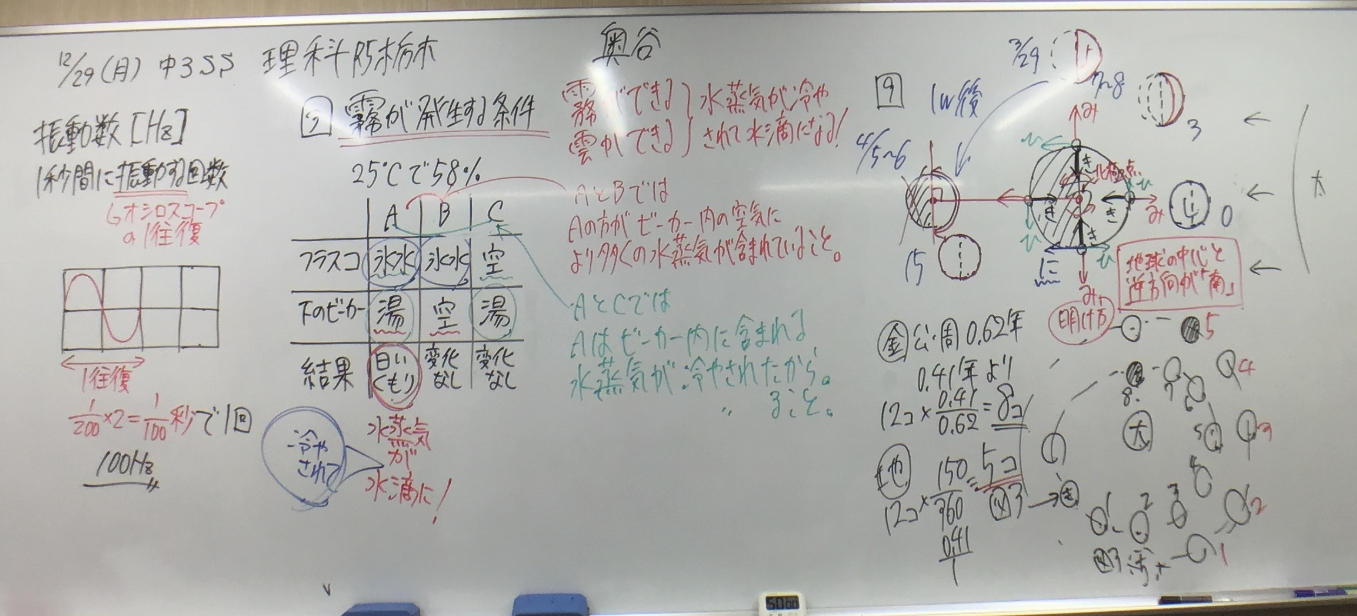 12/29(月) 中3SS 理科 R5栃木
奥谷
振動数[Hz]
1秒間に振動する回数
↳オシロスコープ
の1往復
1往復
1/200×2=1/100秒で1回
100Hz
霧が発生する条件
25℃で58%
A B C
フラスコ 氷水 氷水 空
下のビーカー 湯 空 湯
結果 白いくもり 変化なし 変化なし
冷やされて
水蒸気
が
水滴に!
霧ができる
雲ができる
水蒸気が冷や
されて水滴になる!
AとBでは
Aの方がビーカー内の空気に
より多くの水蒸気が含まれていること。
AとCでは
Aはビーカー内に含まれる
水蒸気が冷やされたから。
〃 ること。
9
1w後
3/29
7~8
3
4/5~6
0
15
み
ひ
き
に
太
地球の中心と
逆方向が「南」
明け方
金 公・周 0.62年
0.41年より
12コ×0.41/0.62=8コ
地
12コ×150/360=5コ
0.41/1
図3
太
1 2 3 4 5 6 7 8
1 2 3 4 5
図3